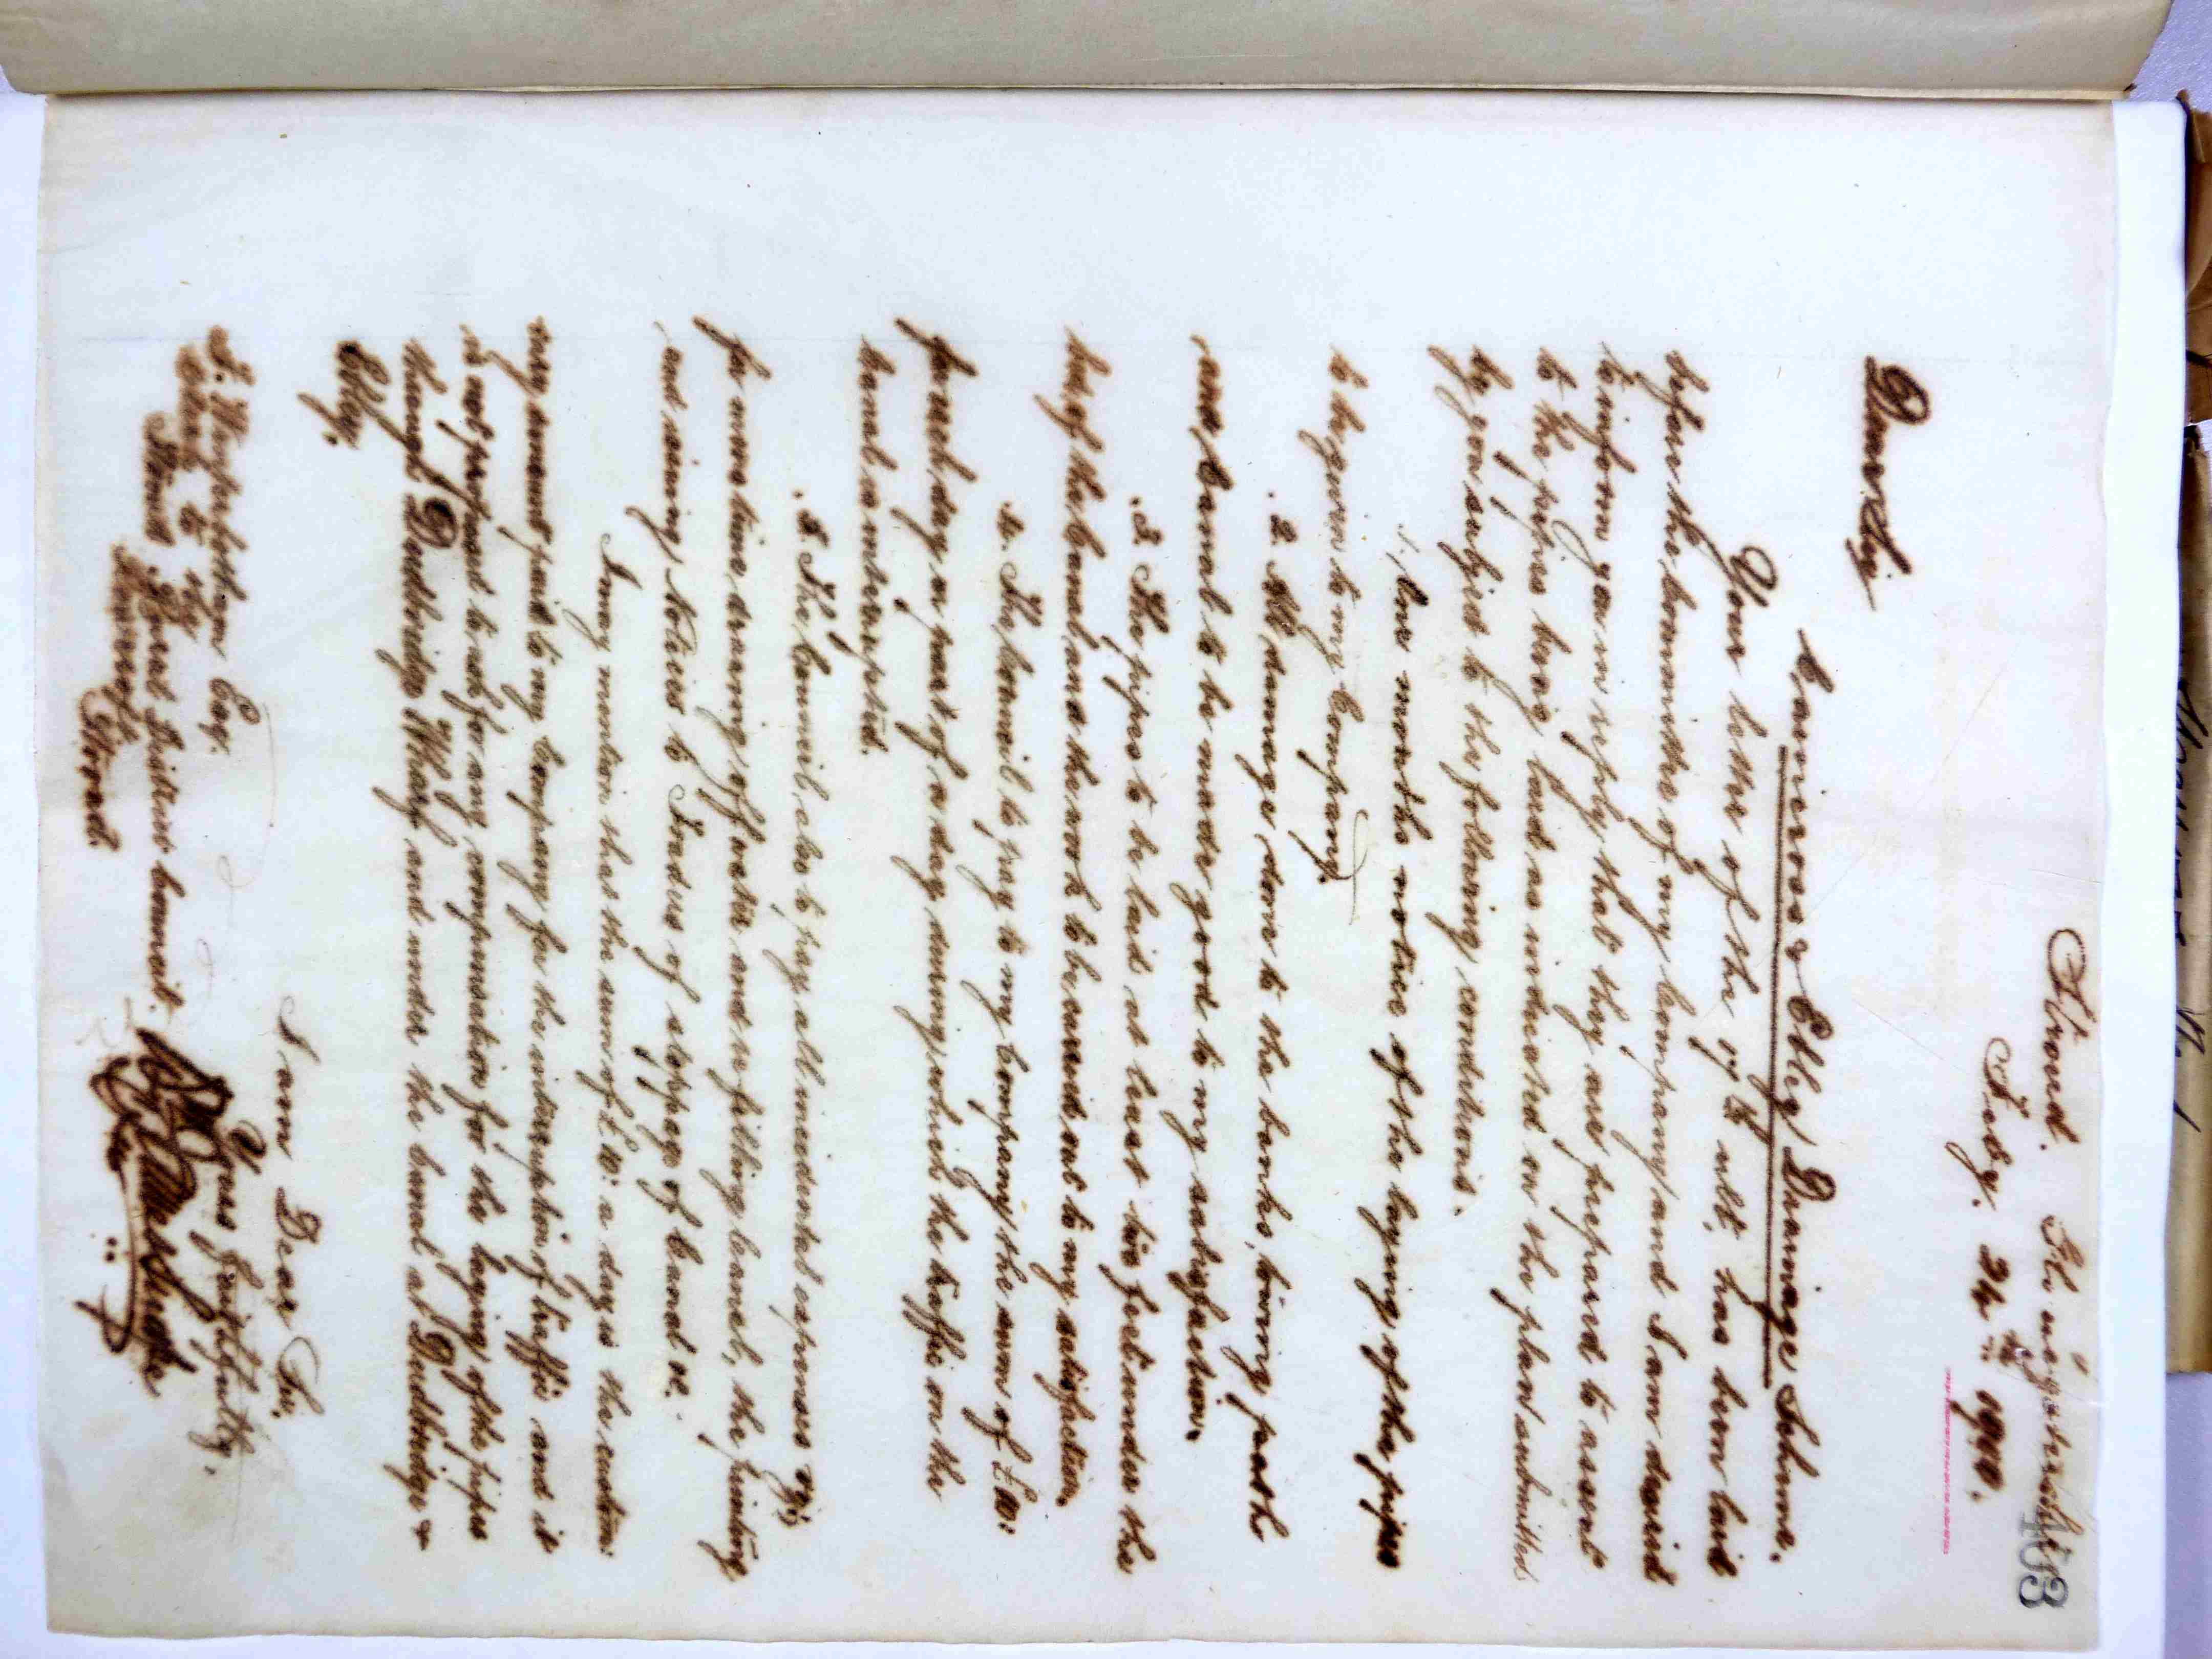 403
Stroud. Gloucestershire
Feby. 24th 1910.
Dear Sir,
Cainscross & Ebley Drainage Scheme.
Your letter of the 17th ult. has been laid
before the Committee of my Company and I am desired
to inform you in reply that they are prepared to assent
to the pipes being laid as indicated on the plan submitted
by you subject to the following conditions.
1. One months notice of the laying of the pipes
to be given to my Company.
2. All damage done to the banks, towing path
and Canal to be made good to my satisfaction.
3. The pipes to be laid at least two feet under the
bed of the Canal and the work to be carried out to my satisfaction.
4. The Council to pay to my Company the sum of £10:
for each day or part of a day during which the traffic on the
Canal is interrupted.
5. The Council also to pay all incidental expenses viz;
for mens time drawing off water and refilling Canal, the printing
and issuing Notices to Traders of stoppage of Canal &c.
I may mention that the sum of £10: a day is the custom:
ary amount paid to my Company for the interruption of traffic and it
is not proposed to ask for any compensation for the laying of the pipes
through Dudbridge Wharf and under the Canal at Dudbridge &
Ebley.
I am Dear Sir,
Yours faithfully,
Esq.
Clerk to the
Stroud Rural District Council.
Stroud.